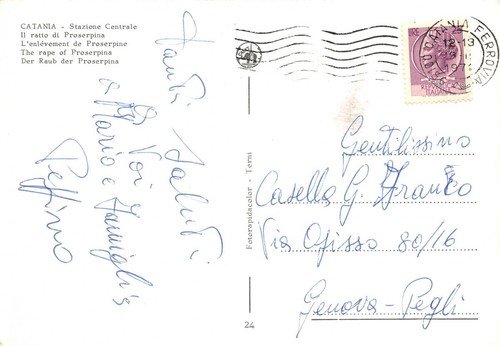 CATANIA - Stazione Centrale
Il ratto di Proserpina
L'enlévement de Proserpine
The rape of Proserpina
Der Raub der Proserpina
Tanti Saluti
a Voi
Mario e Famiglia
Peppino
Fotorapidacolor - Terni
24
CATANIA FERROVIA
12-13
Gentilissimo
Casella G. Franco
Via Ofisso 80/16
Genova-Pegli